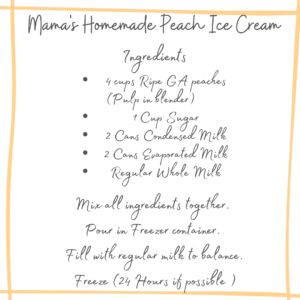 Mama's Homemade Peach Ice Cream
Ingredients
• 4 cups Ripe GA peaches
(Pulp in blender)
• 1 Cup Sugar
• 2 Cans Condensed Milk
• 2 Cans Evaporated Milk
• Regular Whole Milk
Mix all ingredients together.
Pour in Freezer container.
Fill with regular milk to balance.
Freeze (24 Hours if possible )